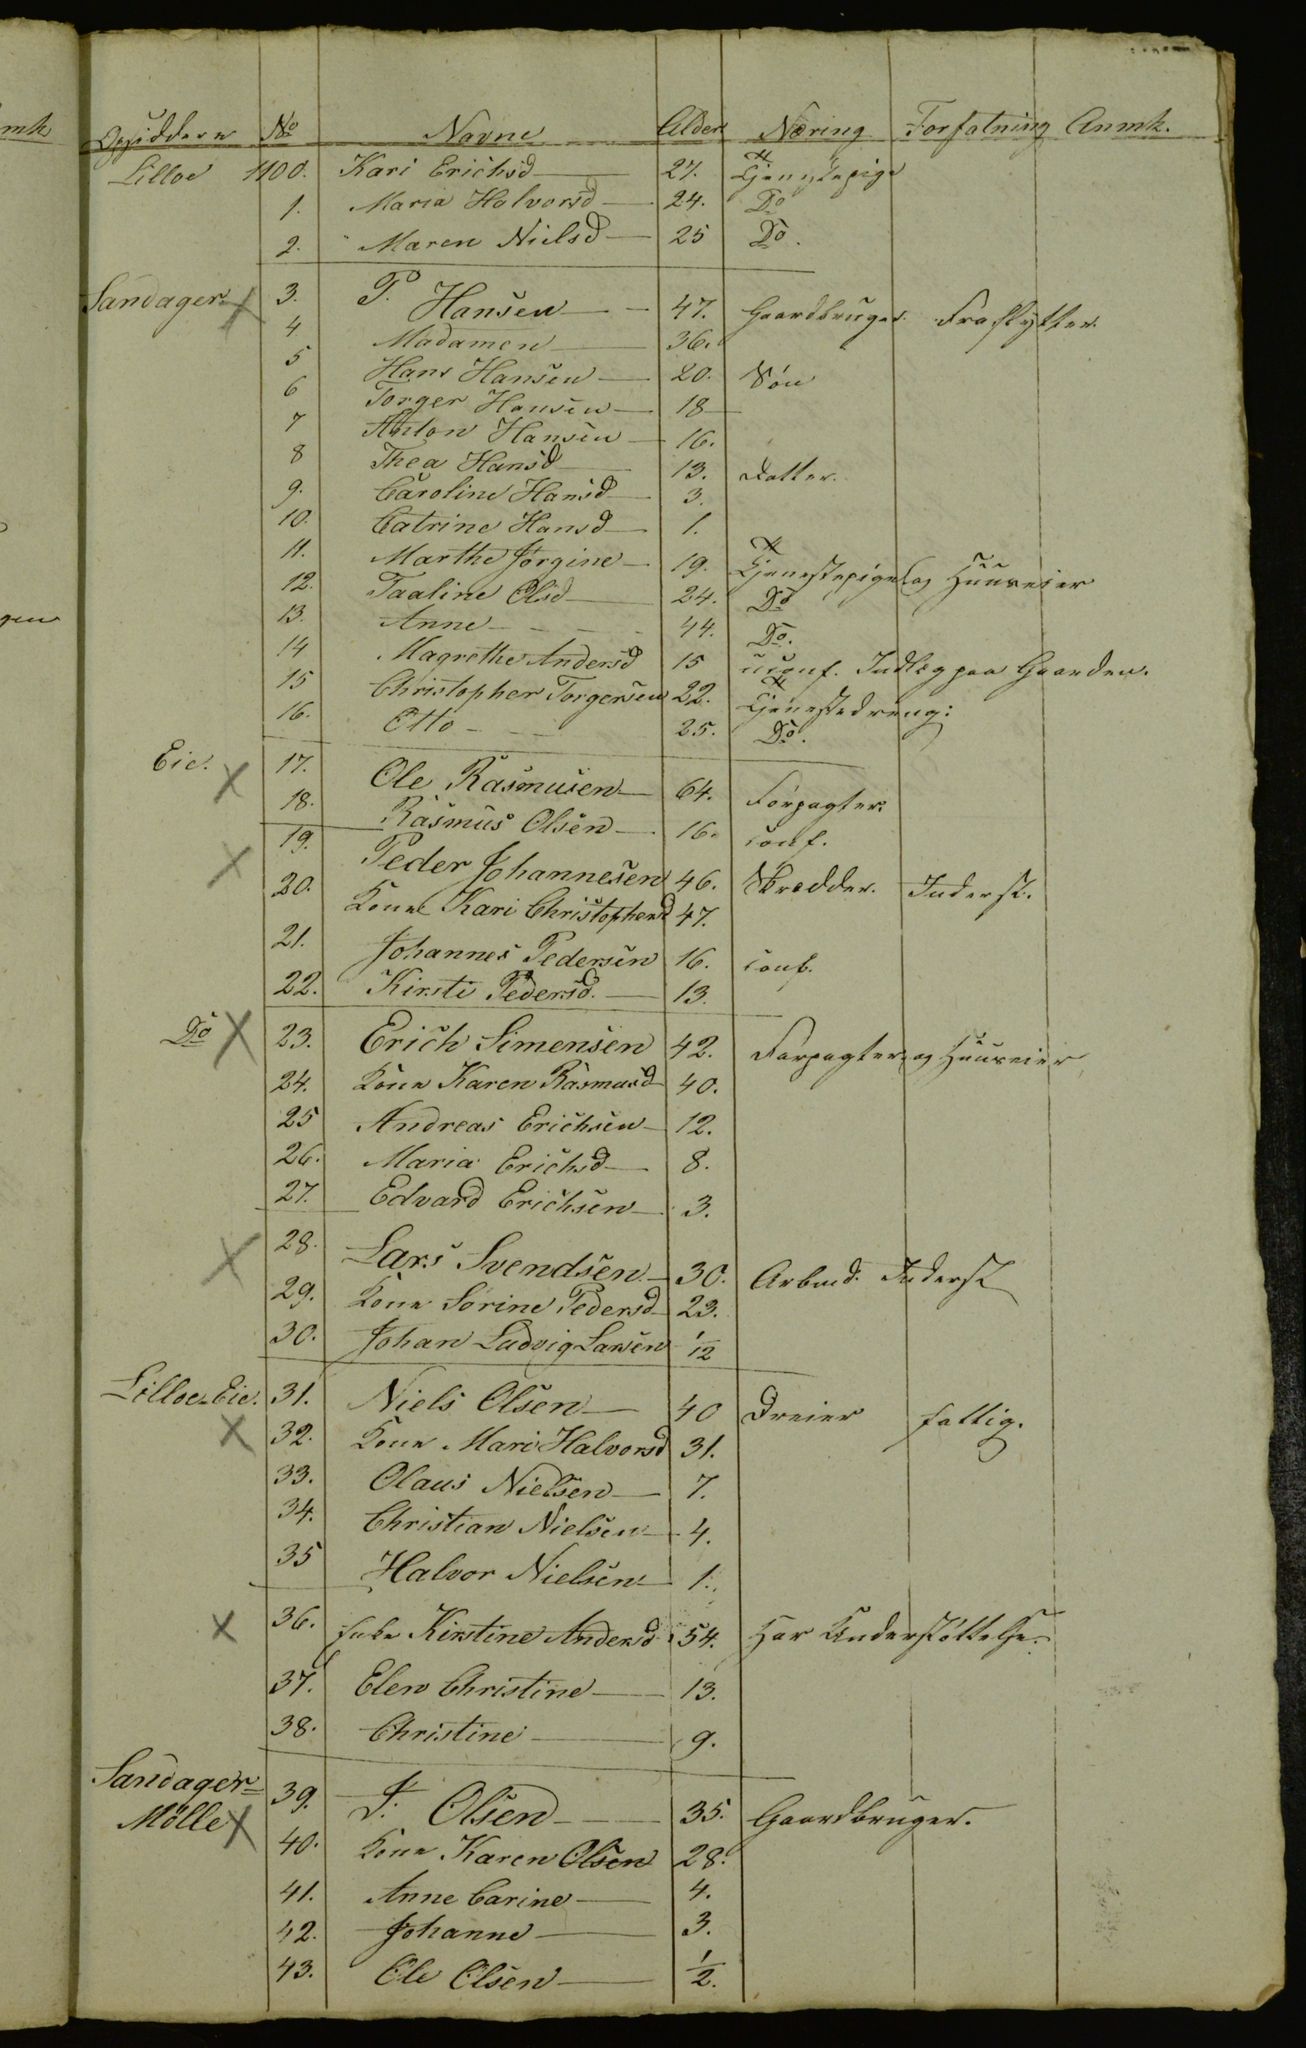 Opsiddere No Navne Alder Næring Forfatning Anmk.
Lilloe 1100. Kari Erichsd 27. Tjenestepige
1. Maria Halvorsd 24. Do
2. Maren Nielsd 25 Do.
Sandager 3. P. Hansen 47. Gaardbruger. Fraflytter.
4 Madamen 36.
5 Hans Hansen 20. Søn
6 Torger Hansen 18
7 Anton Hansen 16.
8 Thea Hansd 13. Datter.
9. Caroline Hansd 3.
10. Catrine Hansd 1.
11. Marthe Jørgine 19. Tjenestepige og Huuseier
12. Taaline Olsd 24. Do
13. Anne 44. Do.
14 Magrethe Andersd 15 uconf. Indlog paa Gaarden.
15 Christopher Torgersen 22. Tjenestedreng:
16. Otto 25. Do.
Eie. 17. Ole Rasmusen 64. Forpagter.
18. Rasmus Olsen 16. conf.
19. Peder Johannesen 46. Skrædder. Inderst.
20. Kone Kari Christophersd 47.
21. Johannes Pedersen 16. conf.
22. Kirsti Pedersd. 13.
Do 23. Erich Simensen 42. Forpagter og Huuseier
24. Kone Karen Rasmusd 40.
25 Andreas Erichsen 12.
26. Maria Erichsd 8.
27. Edvard Erichsen 3.
28. Lars Svendsen 30. Arbeid. Inderst
29. Kone Sørine Pedersd 23.
30. Johan Ludvig Larsen 1/12
Lilloe-Eie. 31. Niels Olsen 40 Dreier fattig.
32. Kone Mari Halvorsd 31.
33. Olaus Nielsen 7.
34. Christian Nielsen 4.
35 Halvor Nielsen 1.
36. Enke Kirstine Andersd 54. Har Understøttelse.
37. Elen Christine 13.
38. Christine 9.
Sandager-
Mølle 39. J. Olsen 35. Gaardbruger.
40. Kone Karen Olsen 28.
41. Anne Carine 4.
42. Johanne 3.
43. Ole Olsen 1/2.